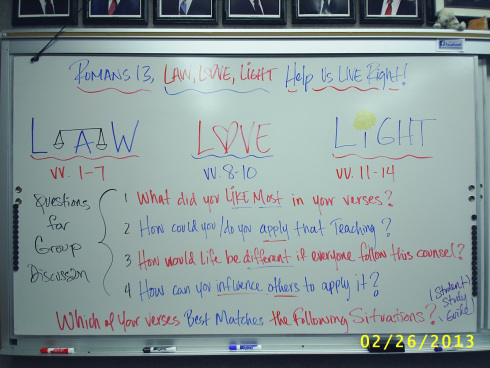 ROMANS 13, LAW, LOVE, LIGHT Help Us LIVE Right!
LAW
vv. 1-7
LOVE
vv. 8-10
LIGHT
vv. 11-14
Questions
for
Group
Discussion
1 What did you LIKE MOST in your verses?
2 How could you/do you apply that Teaching?
3 How would life be different if everyone follow this counsel?
4 How can you influence others to apply it?
Which of your verses Best Matches the Following Situations?
(Student
Study
Guide)
02/26/2013